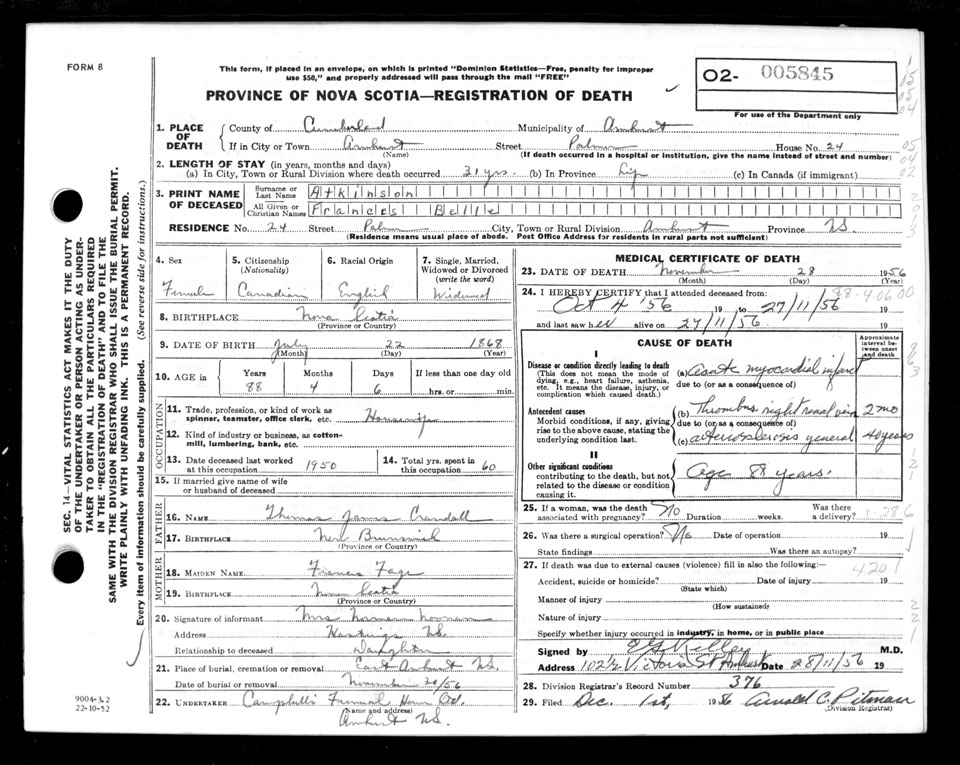 FORM 8
This form, if placed in an envelope, on which is printed "Dominion Statistics—Free, penalty for improper
use $50," and properly addressed will pass through the mail "FREE"
PROVINCE OF NOVA SCOTIA—REGISTRATION OF DEATH
02- 005845
For use of the Department only
1. PLACE OF DEATH
County of Cumberland Municipality of Amherst
If in City or Town Amherst Street Palmer House No. 24
(Name) (If death occurred in a hospital or institution, give the name instead of street and number)
2. LENGTH OF STAY (in years, months and days)
(a) In City, Town or Rural Division where death occurred 31 yrs. (b) In Province Life (c) In Canada (if immigrant)
3. PRINT NAME OF DECEASED
Surname or Last Name Atkinson
All Given or Christian Names Frances Belle
RESIDENCE No. 24 Street Palmer City, Town or Rural Division Amherst Province N.S.
(Residence means usual place of abode. Post Office Address for residents in rural parts not sufficient)
4. Sex 5. Citizenship (Nationality) 6. Racial Origin 7. Single, Married, Widowed or Divorced (write the word)
Female Canadian English Widowed
8. BIRTHPLACE Nova Scotia
(Province or Country)
9. DATE OF BIRTH July 22 1868
(Month) (Day) (Year)
10. AGE in Years Months Days If less than one day old
88 4 6 hrs. or min.
OCCUPATION
11. Trade, profession, or kind of work as
spinner, teamster, office clerk, etc. Housewife
12. Kind of industry or business, as cotton-
mill, lumbering, bank, etc.
13. Date deceased last worked at this occupation 1950 14. Total yrs. spent in this occupation 60
15. If married give name of wife
or husband of deceased
FATHER
16. NAME Thomas James Crandall
17. BIRTHPLACE New Brunswick
(Province or Country)
MOTHER
18. MAIDEN NAME Frances Fage
19. BIRTHPLACE Nova Scotia
(Province or Country)
20. Signature of informant Mrs Norman Noonan
Address Hastings N.S.
Relationship to deceased Daughter
21. Place of burial, cremation or removal East Amherst N.S.
Date of burial or removal November 30/56
22. UNDERTAKER Campbell's Funeral Home Co.
(Name and address)
Amherst N.S.
MEDICAL CERTIFICATE OF DEATH
23. DATE OF DEATH November 28 1956
(Month) (Day) (Year)
24. I HEREBY CERTIFY that I attended deceased from: 88-4.06 00
Oct 4 '56 19 to 27/11/56 19
and last saw her alive on 27/11/56 19
CAUSE OF DEATH
Approximate interval between onset and death
I
Disease or condition directly leading to death
(This does not mean the mode of
dying, e.g., heart failure, asthenia,
etc. It means the disease, injury, or
complication which caused death.)
(a) acute myocardial infarct
due to (or as a consequence of)
Antecedent causes
Morbid conditions, if any, giving
rise to the above cause, stating the
underlying condition last.
(b) Thrombus right renal vein 2 mo
due to (or as a consequence of)
(c) arteriosclerosis general 40 years
II
Other significant conditions
contributing to the death, but not
related to the disease or condition
causing it.
Age 88 years.
25. If a woman, was the death associated with pregnancy? No Duration weeks. Was there a delivery?
26. Was there a surgical operation? No Date of operation 19
State findings Was there an autopsy?
27. If death was due to external causes (violence) fill in also the following: 4201
Accident, suicide or homicide? Date of injury 19
(State which)
Manner of injury
(How sustained)
Nature of injury
Specify whether injury occurred in industry, in home, or in public place
Signed by M.D.
Address 102½ Victoria St Amherst Date 28/11/56 19
28. Division Registrar's Record Number 376
29. Filed Dec. 1st, 1956 Arnold C. Pitman
(Division Registrar)
SEC. 14—VITAL STATISTICS ACT MAKES IT THE DUTY
OF THE UNDERTAKER OR PERSON ACTING AS UNDER-
TAKER TO OBTAIN ALL THE PARTICULARS REQUIRED
IN THE "REGISTRATION OF DEATH" AND TO FILE THE
SAME WITH THE DIVISION REGISTRAR WHO SHALL ISSUE THE BURIAL PERMIT.
WRITE PLAINLY WITH UNFADING INK. THIS IS A PERMANENT RECORD.
Every item of information should be carefully supplied. (See reverse side for instructions.)
9004-3.2
22-10-52